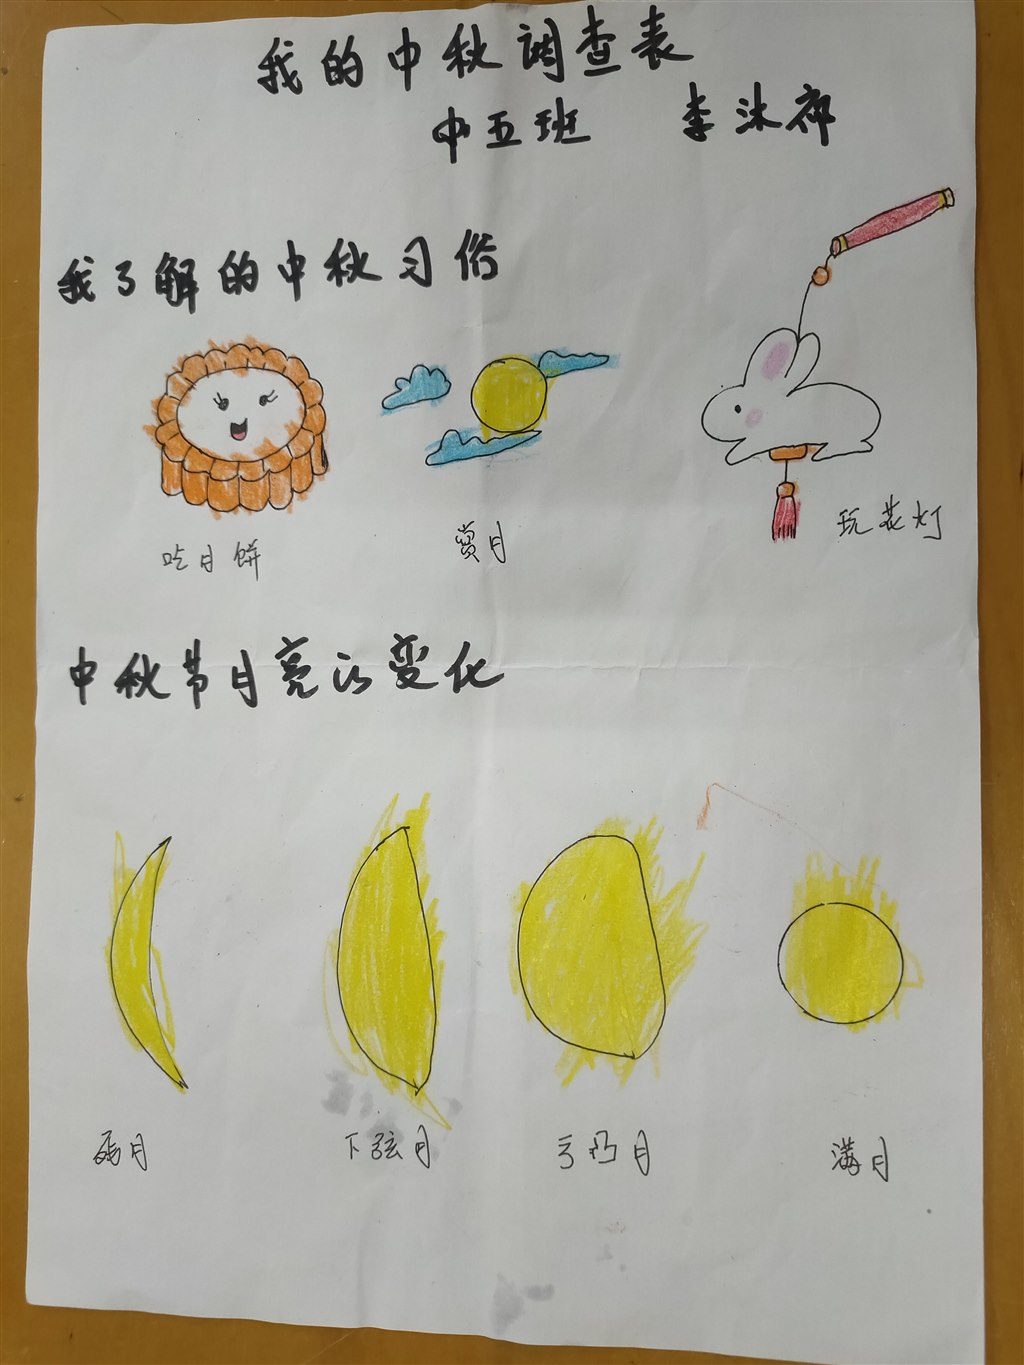 我的中秋调查表
中五班 李沐祁
我了解的中秋习俗
吃月饼 赏月 玩花灯
中秋节月亮的变化
残月 下弦月 亏凸月 满月